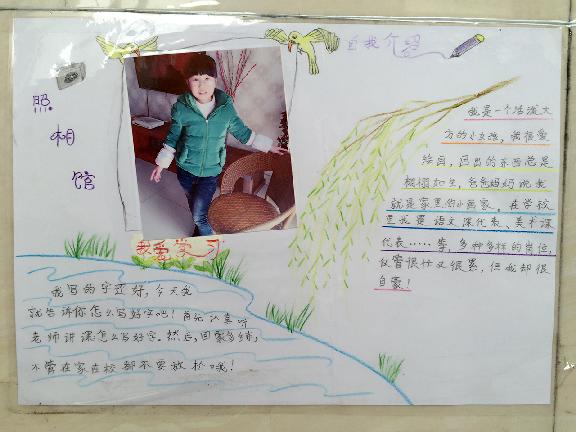 自我介绍
照
相
馆
我是一个活泼大
方的小女孩，我很爱
绘画，画出的东西总是
栩栩如生，爸爸妈妈说我
就是家里的小画家。在学校
里我是语文课代表、美术课
代表……等，多种多样的岗位，
仅管很忙又很累，但我却很
自豪！
我爱学习
我写的字还好，今天我
就告诉你怎么写好字吧！首先认真听
老师讲课怎么写好字。然后，回家多练，
不管在家在校都不要放松哦！